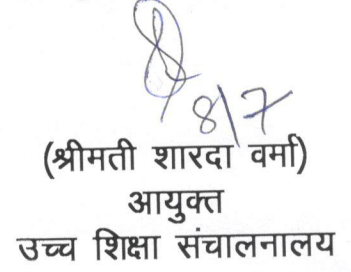 8/7
(श्रीमती शारदा वर्मा)
आयुक्त
उच्च शिक्षा संचालनालय